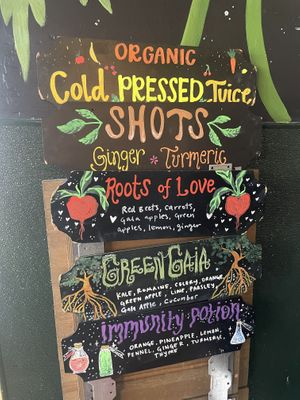 ORGANIC
Cold PRESSED Juice
SHOTS
Ginger * Turmeric
Roots of Love
Red Beets, Carrots,
Gala apples, Green
apples, lemon, ginger
GREEN GAIA
KALE, ROMAINE, CELERY, ORANGE,
GREEN APPLE, LIME, PARSLEY,
GALA APPLE, CUCUMBER
immunity potion
ORANGE, PINEAPPLE, LEMON,
FENNEL, GINGER, TURMERIC,
THYME